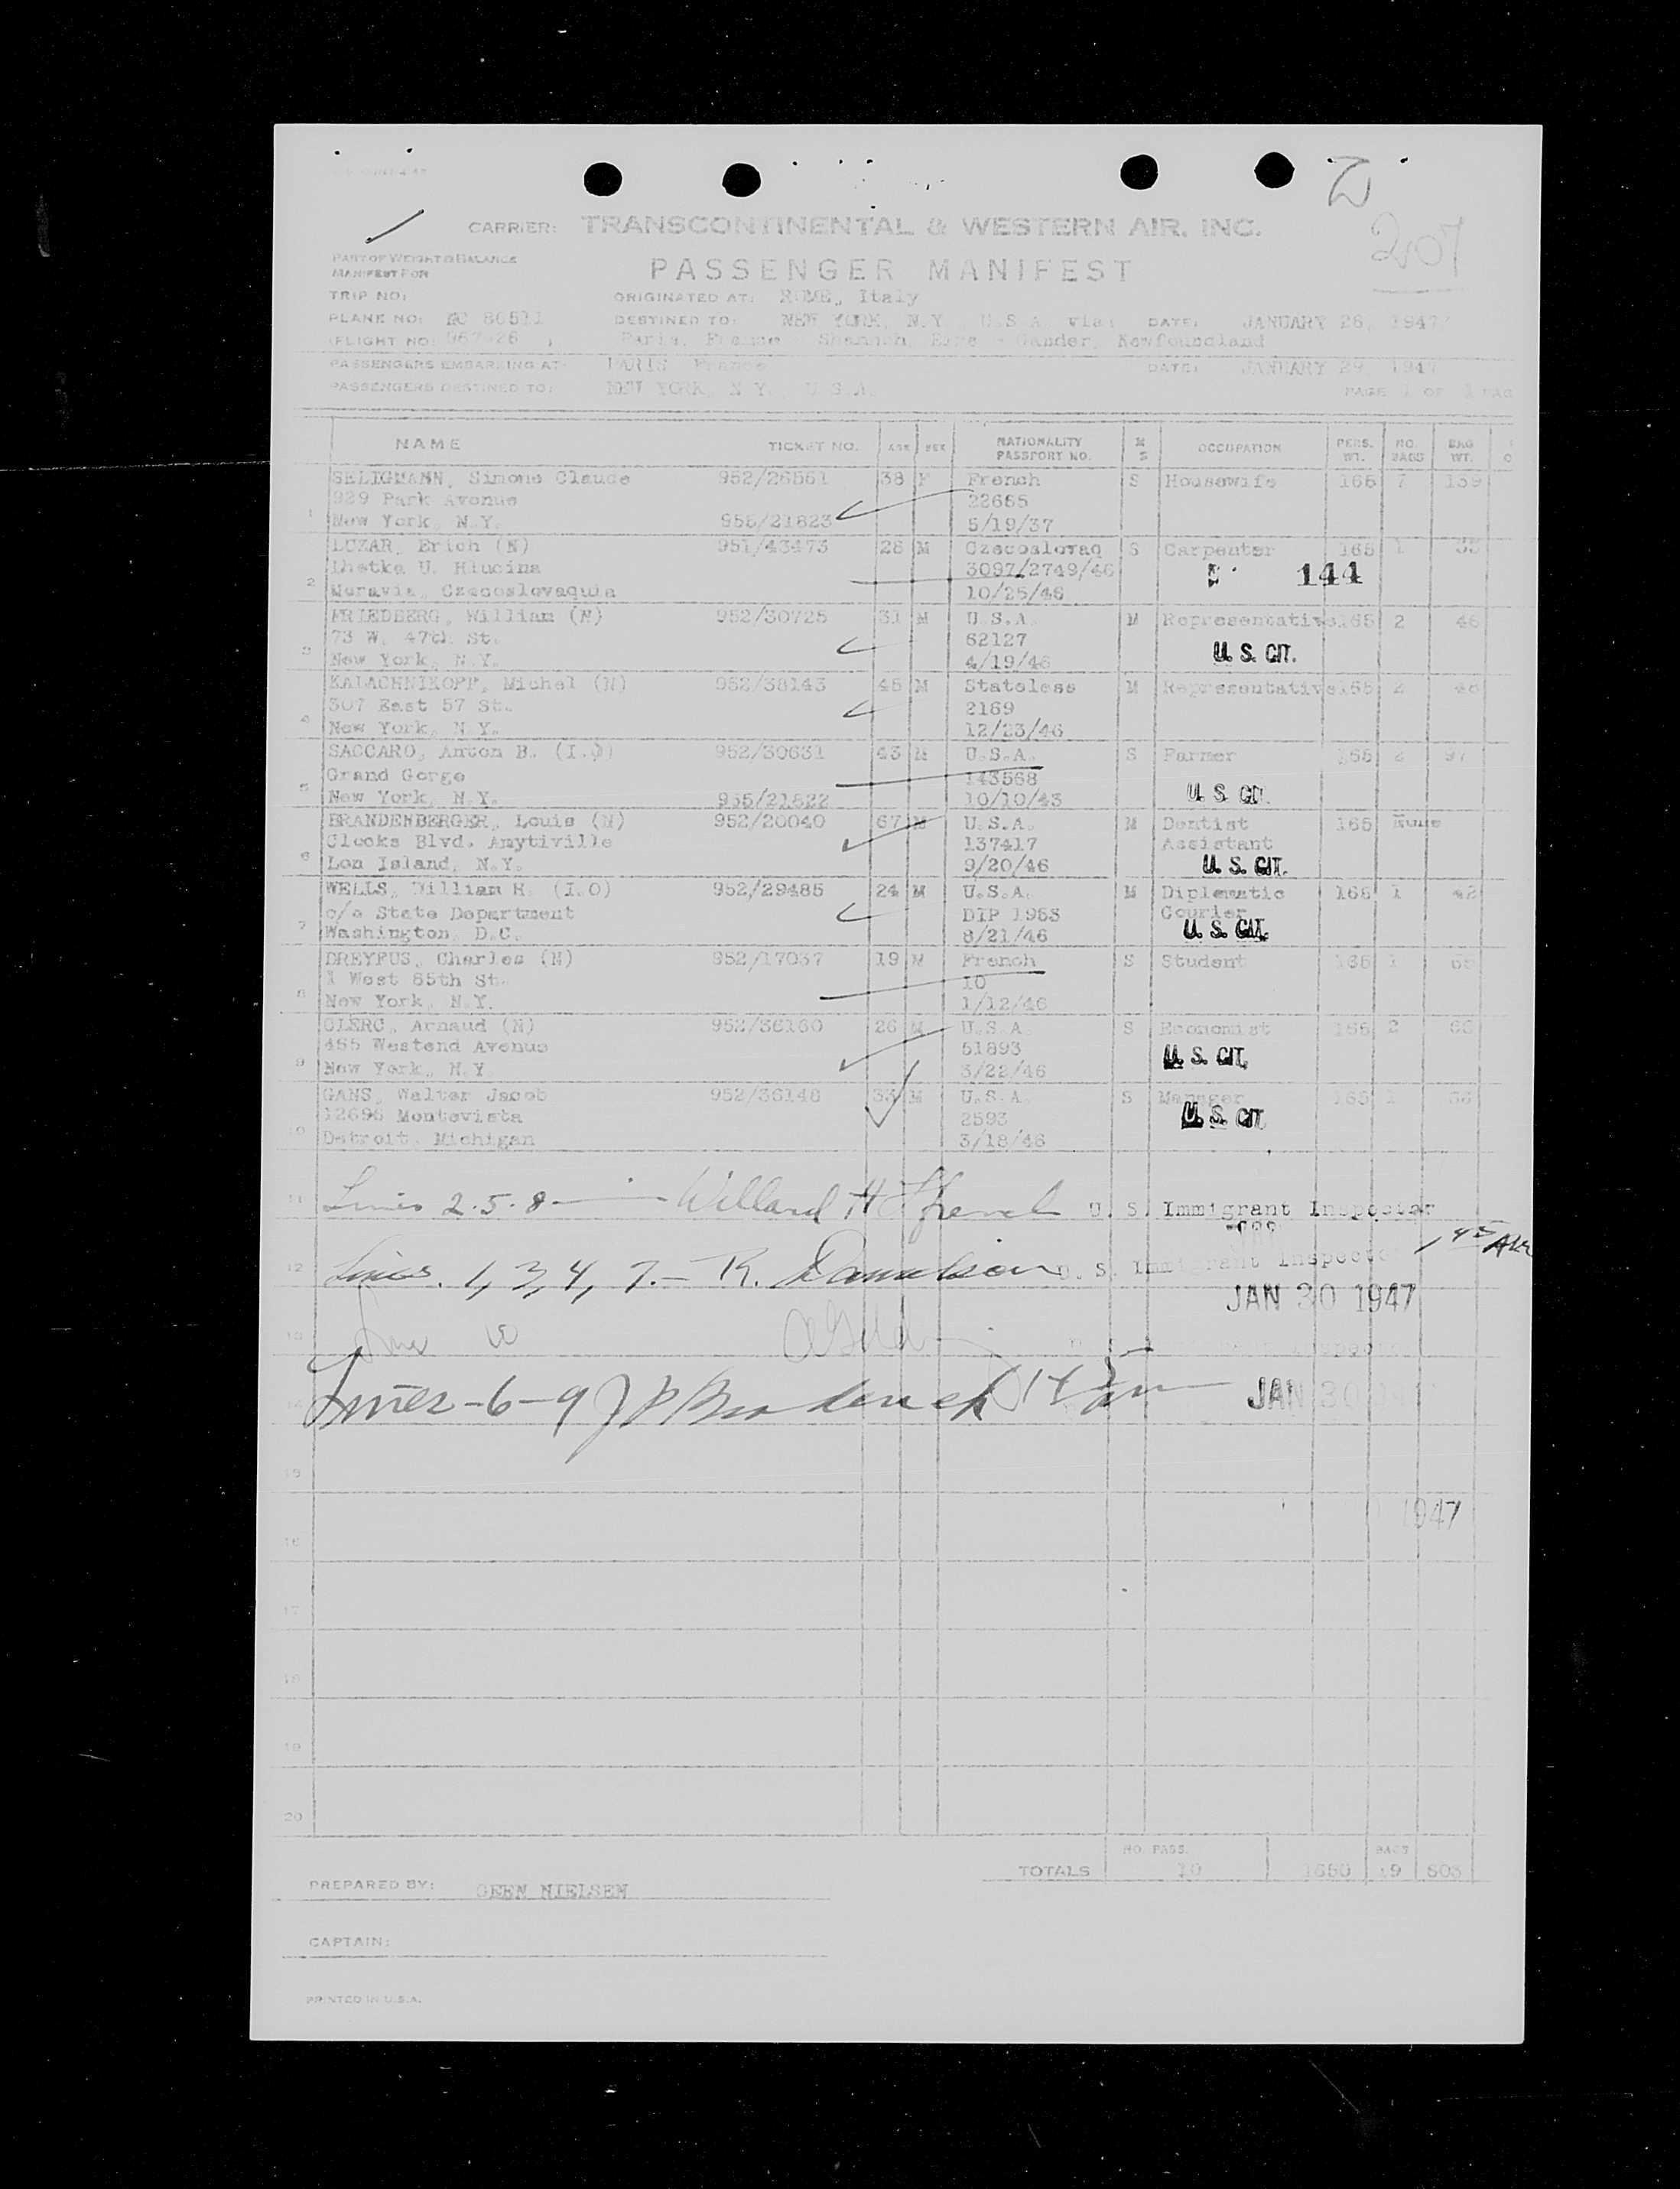 CARRIER: TRANSCONTINENTAL & WESTERN AIR, INC.
207
PART OF WEIGHT & BALANCE
MANIFEST FOR
PASSENGER MANIFEST
TRIP NO:
ORIGINATED AT: ROME, Italy
PLANE NO: NC 86511 DESTINED TO: NEW YORK, N.Y. U.S.A. via: DATE: JANUARY 28, 1947
(FLIGHT NO: 967-26 ) Paris, France - Shannon, Eire - Gander, Newfoundland
PASSENGERS EMBARKING AT: PARIS France DATE: JANUARY 29, 1947
PASSENGERS DESTINED TO: NEW YORK, N.Y., U.S.A. PAGE 1 OF
NAME TICKET NO. AGE SEX NATIONALITY PASSPORT NO. M S OCCUPATION PERS. WT. NO. BAGS BAG WT.
SELIGMANN, Simone Claude 952/26561 38 F French S Housewife 165 7 139
929 Park Avenue 22665
1 New York, N.Y. 955/21823 5/19/37
LOZAR, Erich (N) 951/43473 28 M Czecoslovaq S Carpenter 165 1 35
Lhetka U. Hlucina 3097/2749/46 144
2 Moravia, Czecoslovaquia 10/25/46
FRIEDBERG, William (N) 952/30725 31 M U.S.A. M Representative 165 2 46
73 W. 47th St. 62127 U. S. CIT.
3 New York, N.Y. 4/19/46
KALACHNIKOFF, Michel (N) 952/38143 45 M Stateless M Representative 165 2 46
307 East 57 St. 2169
4 New York, N.Y. 12/23/46
SACCARO, Anton B. (I.O) 952/30631 43 M U.S.A. S Farmer 165 2 97
Grand Gorge 143568
5 New York, N.Y. 955/21822 10/10/43 U. S. CIT.
BRANDENBERGER, Louis (N) 952/20040 67 M U.S.A. M Dentist 165 None
Clocks Blvd. Amytiville 137417 Assistant
6 Lon Island, N.Y. 9/20/46 U. S. CIT.
WELLS, William H. (I.O) 952/29485 24 M U.S.A. M Diplomatic 165 1 42
c/o State Department DIP 1953 Courier
7 Washington, D.C. 8/21/46 U. S. CIT.
DREYFUS, Charles (N) 952/17037 19 M French S Student 165 1
1 West 85th St. 10
8 New York, N.Y. 1/12/46
CLERC, Arnaud (N) 952/36160 26 M U.S.A. S Economist 165 2 66
465 Westend Avenue 51893 U. S. CIT.
9 New York, N.Y. 3/22/46
GANS, Walter Jacob 952/36148 33 M U.S.A. S Manager 165 1
12696 Montevista 2593 U. S. CIT.
10 Detroit, Michigan 3/18/46
11 Lines 2.5.8 — Willard H French U. S. Immigrant Inspector
12 Lines. 1, 3, 4, 7. — R. Danielson U. S. Immigrant Inspector
JAN 30 1947
13 Line 10
14 Lines - 6 - 9 JAN 30
15
1947
16
17
18
19
20
NO. PASS. BAGS
TOTALS 10 1650 19 603
PREPARED BY: GEEN NIELSEN
CAPTAIN:
PRINTED IN U.S.A.